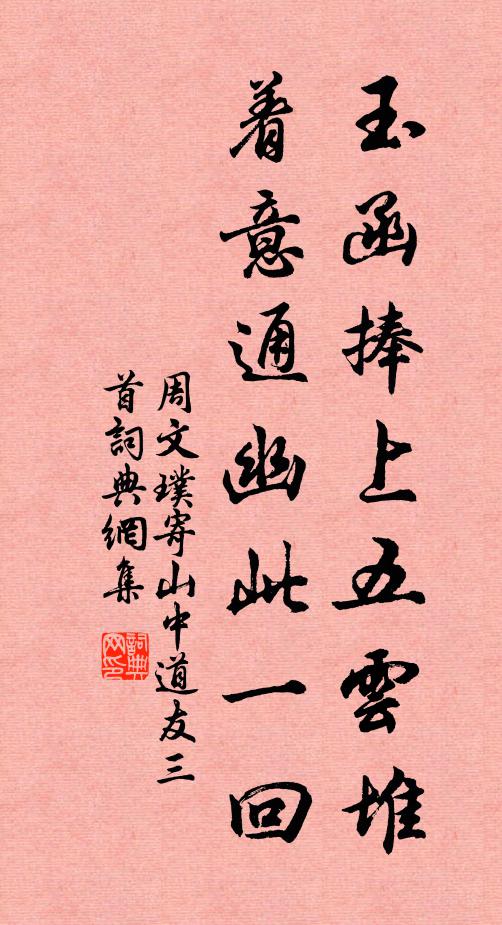 玉函捧上五雲堆
着意通幽此一回
周文璞寄山中道友三
首詞典網集
詞典
网印